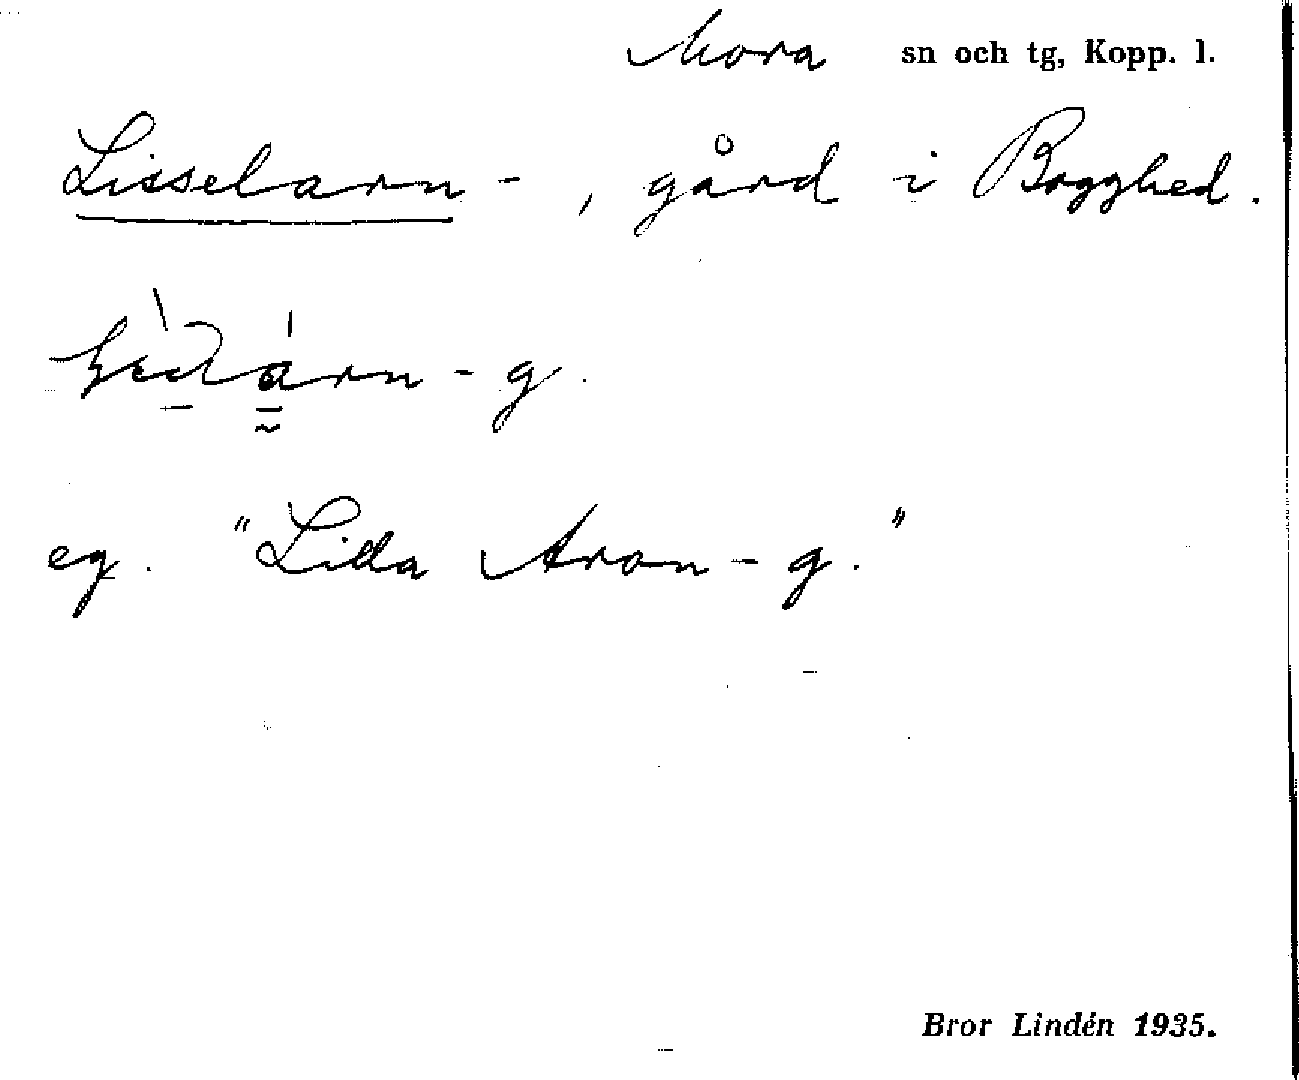 Mora sn och tg, Kopp. l.
Lisselarn-, gård i Bogghed.
eg. "Lilla Aron-g."
Bror Lindén 1935.